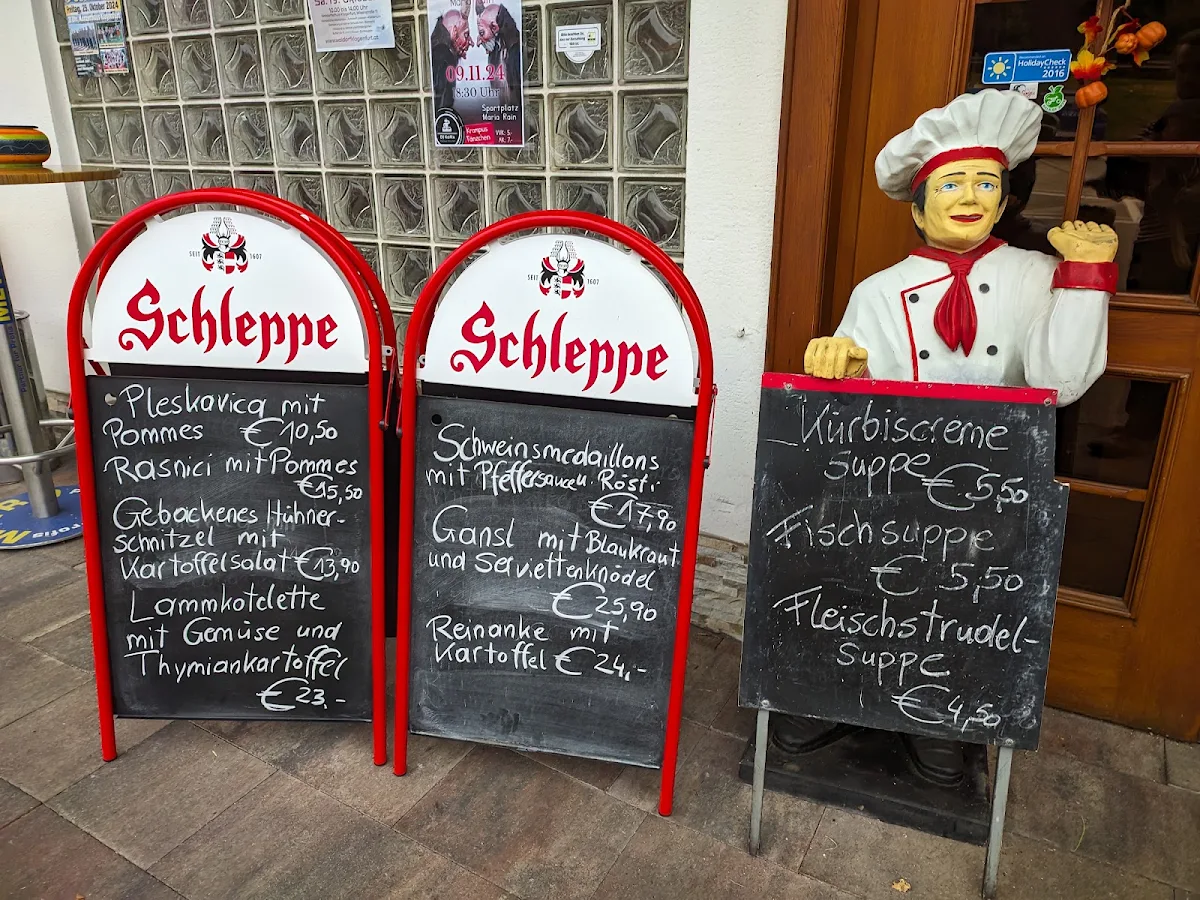 Freitag, 25. Oktober 2024
Sa. 19. Okt
09.11.24
18:30 Uhr
Sportplatz
Maria Rain
Krampus
Tänzchen
VVK: 5,-
AK: 7,-
HolidayCheck
2016
SEIT 1607
Schleppe
Pleskavica mit
Pommes €10,50
Rasnici mit Pommes
€15,50
Gebackenes Hühner-
schnitzel mit
Kartoffelsalat €13,90
Lammkotelette
mit Gemüse und
Thymiankartoffel
€23,-
SEIT 1607
Schleppe
Schweinsmedaillons
mit Pfeffersauce u. Rösti
€17,90
Gansl mit Blaukraut
und Serviettenknödel
€25,90
Reinanke mit
Kartoffel €24,-
Kürbiscreme
suppe
€5,50
Fischsuppe
€5,50
Fleischstrudel-
suppe
€4,50